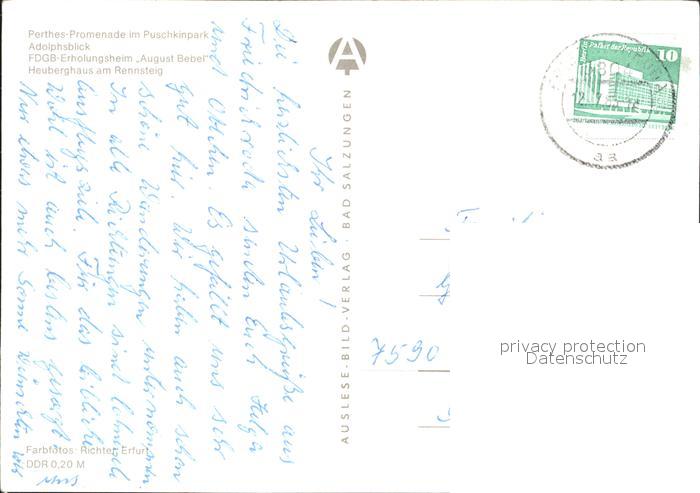 Perthes-Promenade im Puschkinpark
Adolphsblick
FDGB-Erholungsheim „August Bebel"
Heuberghaus am Rennsteig
Ihr Lieben!
Die herzlichsten Urlaubsgrüße aus
Friedrichroda senden Euch Helga
und Ottchen. Es gefällt uns sehr
gut hier. Wir haben auch schon
schöne Wanderungen unternommen.
In alle Richtungen sind lohnende
Ausflugsziele. Für das leibliche
Wohl ist auch bestens gesorgt.
Nur etwas mehr Sonne wünschten wir
uns
Farbfotos: Richter, Erfurt
DDR 0,20 M
AUSLESE-BILD-VERLAG · BAD SALZUNGEN
Berlin, Palast der Republik
10
aa
7590
privacy protection
Datenschutz